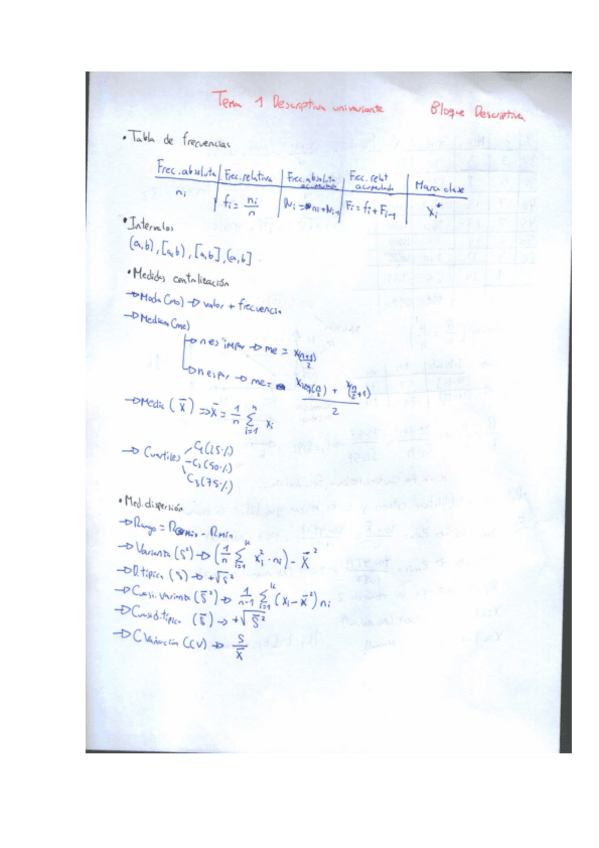 Tema 1 Descriptiva univariante Bloque Descriptiva
• Tabla de frecuencias
Frec. absoluta Frec. relativa Frec. absoluta acumulada Frec. relat acumulada Marca clase
ni fi = ni/n Ni = ni + Ni-1 Fi = fi + Fi-1 xi*
• Intervalos
(a,b), [a,b), [a,b], (a,b]
• Medidas centralización
→ Moda (mo) → valor + frecuencia
→ Mediana (me)
→ n es impar → me = x(n+1)/2
→ n es par → me =
2
→ Media (x̄) ⇒ x̄ = 1/n Σ i=1 n xi
→ Cuartiles
C1 (25%)
C2 (50%)
C3 (75%)
• Med. dispersión
→ Rango =
→ Varianza (s²) → (1/n Σ i=1 k xi² · ni) - x̄²
→ D. típica (s) → +√s²
→ Cuasi. varianza (s̄²) → 1/n-1 Σ i=1 k (xi - x̄²) ni
→ Cuasid. típica (s̄) → +√s̄²
→ C Variación (CV) → s/x̄